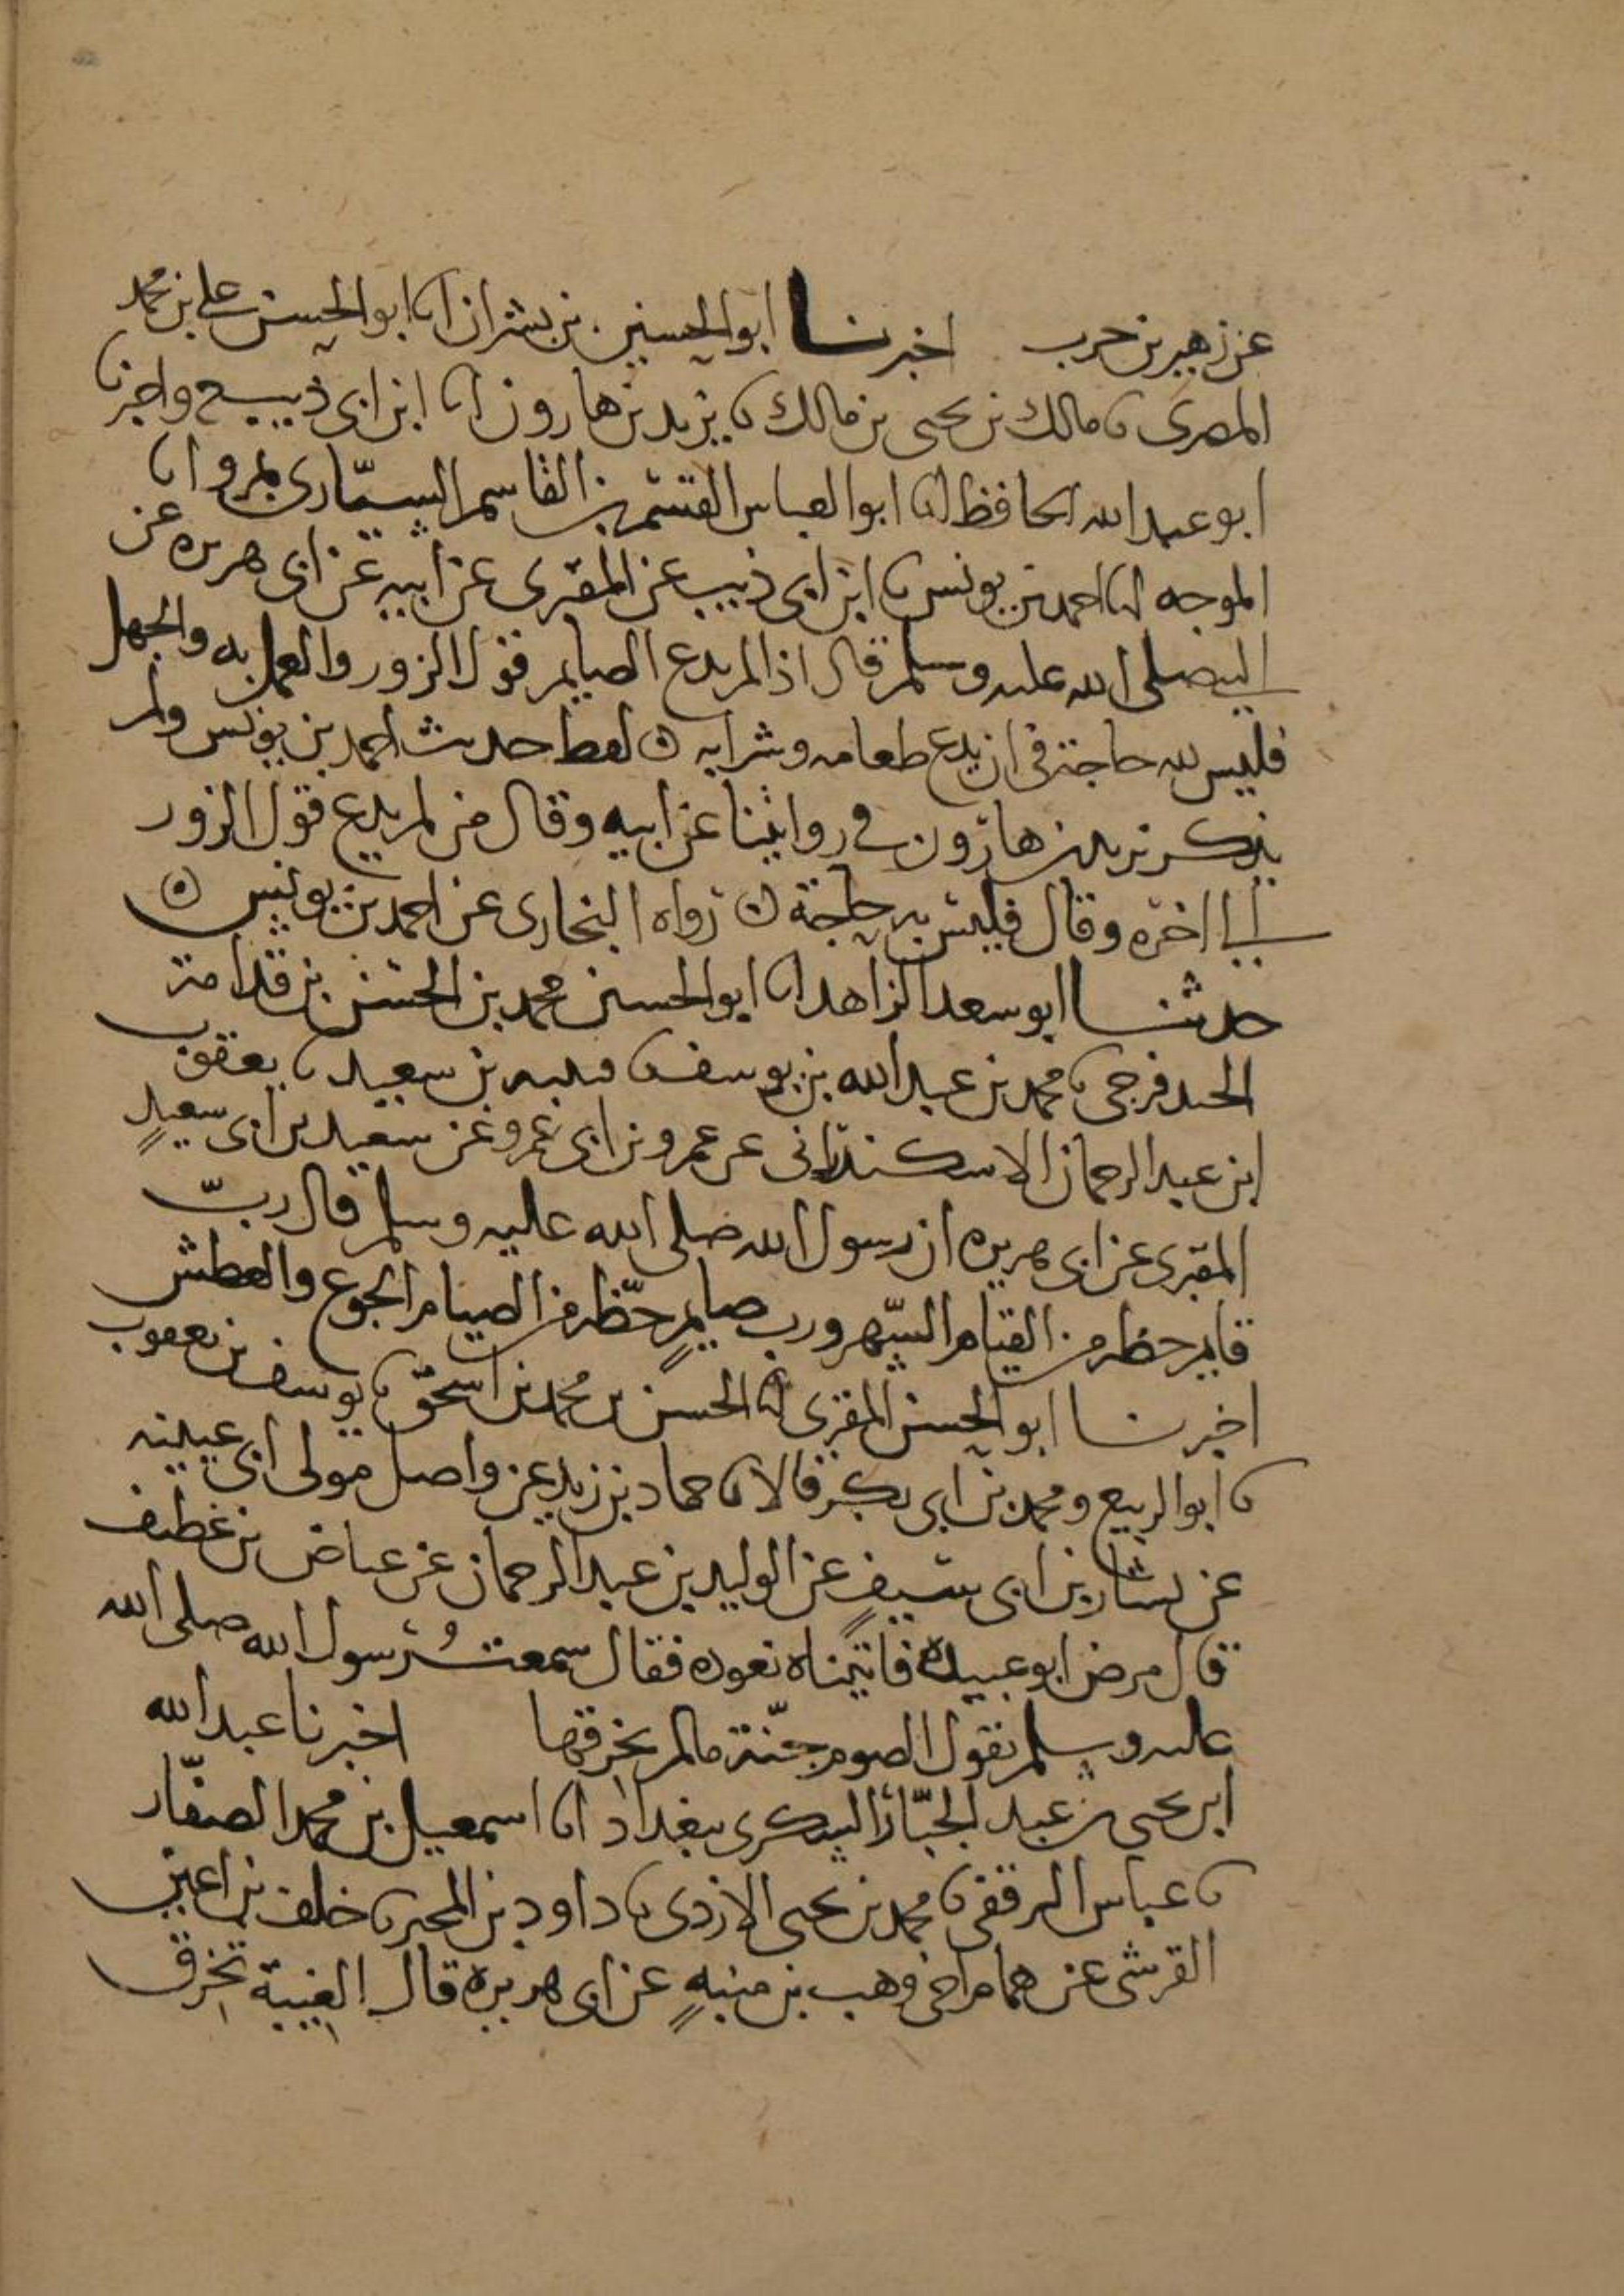 عن زهير بن حرب اخبرنا ابو الحسين بن بشران انا ابو الحسن علي بن محمد
المصرى نا مالك بن يحيى بن مالك نا يزيد بن هارون انا ابن ابى ذيب ح واخبرنا
ابو عبد الله الحافظ انا ابو العباس القسم بن القاسم السيّارى بمرو انا
الموجه انا احمد بن يونس نا ابن ابى ذيب عن المقبرى عن ابيه عن ابى هريره عن
النبي صلى الله عليه وسلم قال اذا لم يدع الصايم قول الزور والعمل به والجهل
فليس لله حاجة فى ان يدع طعامه وشرابه ه لفظ حديث احمد بن يونس ولم
يذكر يزيد بن هارون في روايتنا عن ابيه وقال من لم يدع قول الزور
الى اخره وقال فليس به حاجة ه رواه البخارى عن احمد بن يونس ه
حدثنا ابو سعد الزاهد انا ابو الحسين محمد بن الحسن بن قدامة
نا محمد بن عبد الله بن يوسف نا قتيبه بن سعيد نا يعقوب
ابن عبد الرحمان الاسكندرانى عن عمرو بن ابى عمرو عن سعيد بن ابى سعيدٍ
المقبرى عن ابى هريره ان رسول الله صلى الله عليه وسلم قال ربّ
قايم حظه من القيام السّهر ورب صايمٍ حظّه من الصيام الجوع والعطش
اخبرنا ابو الحسن المقرى انا الحسن بن محمد بن اسحق نا يوسف بن يعقوب
نا ابو الربيع ومحمد بن ابى بكر قالا نا حماد بن زيد عن واصل مولى ابى عيينه
عن بشار بن ابى سيفٍ عن الوليد بن عبد الرحمان عن عياض بن غطيف
قال مرض ابو عبيدة فاتيناه نعوده فقال سمعتُ رسول الله صلى الله
عليه وسلم يقول الصوم جنّة مالم يخرقها اخبرنا عبد الله
ابن يحيى بن عبد الجبّار السكرى ببغداد انا اسمعيل بن محمد الصفّار
نا عباس الترقفى نا محمد بن يحيى الازدى نا داود بن المحبر نا خلف بن اعين
القرشى عن همام اخى وهب بن منبهٍ عن ابى هريره قال الغيبة تخرق